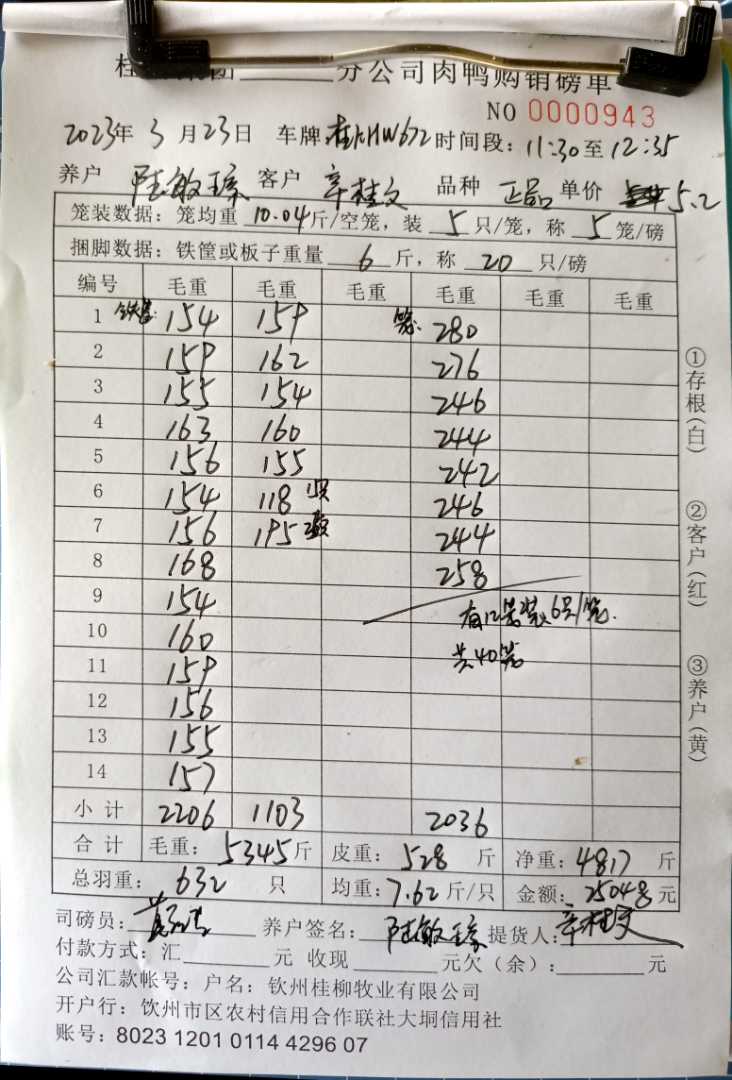 分公司肉鸭购销磅单
NO 0000943
2023年 3 月 23日 车牌: 时间段: 11:30 至 12:35
养户 陆敏琼 客户 辛桂文 品种 正品 单价 5.2
笼装数据: 笼均重 10.04 斤/空笼, 装 5 只/笼, 称 5 笼/磅
捆脚数据: 铁筐或板子重量 6 斤, 称 20 只/磅
编号 毛重 毛重 毛重 毛重 毛重 毛重
1 154 159 笼: 280
2 159 162 276
3 155 154 246
4 163 160 244
5 156 155 242
6 154 118 246
7 156 195 244
8 168 258
9 154 有12笼装6只/笼.
10 160
11 159 共40笼
12 156
13 155
14 157
小计 2206 1103 2036
合计 毛重: 5345 斤 皮重: 528 斤 净重: 4817 斤
总羽重: 632 只 均重: 7.62 斤/只 金额: 25048 元
司磅员: 养户签名: 陆敏琼 提货人: 辛桂文
付款方式: 汇 元 收现 元欠(余): 元
公司汇款帐号: 户名: 钦州桂柳牧业有限公司
开户行: 钦州市区农村信用合作联社大垌信用社
账号: 8023 1201 0114 4296 07
①存根(白)
②客户(红)
③养户(黄)